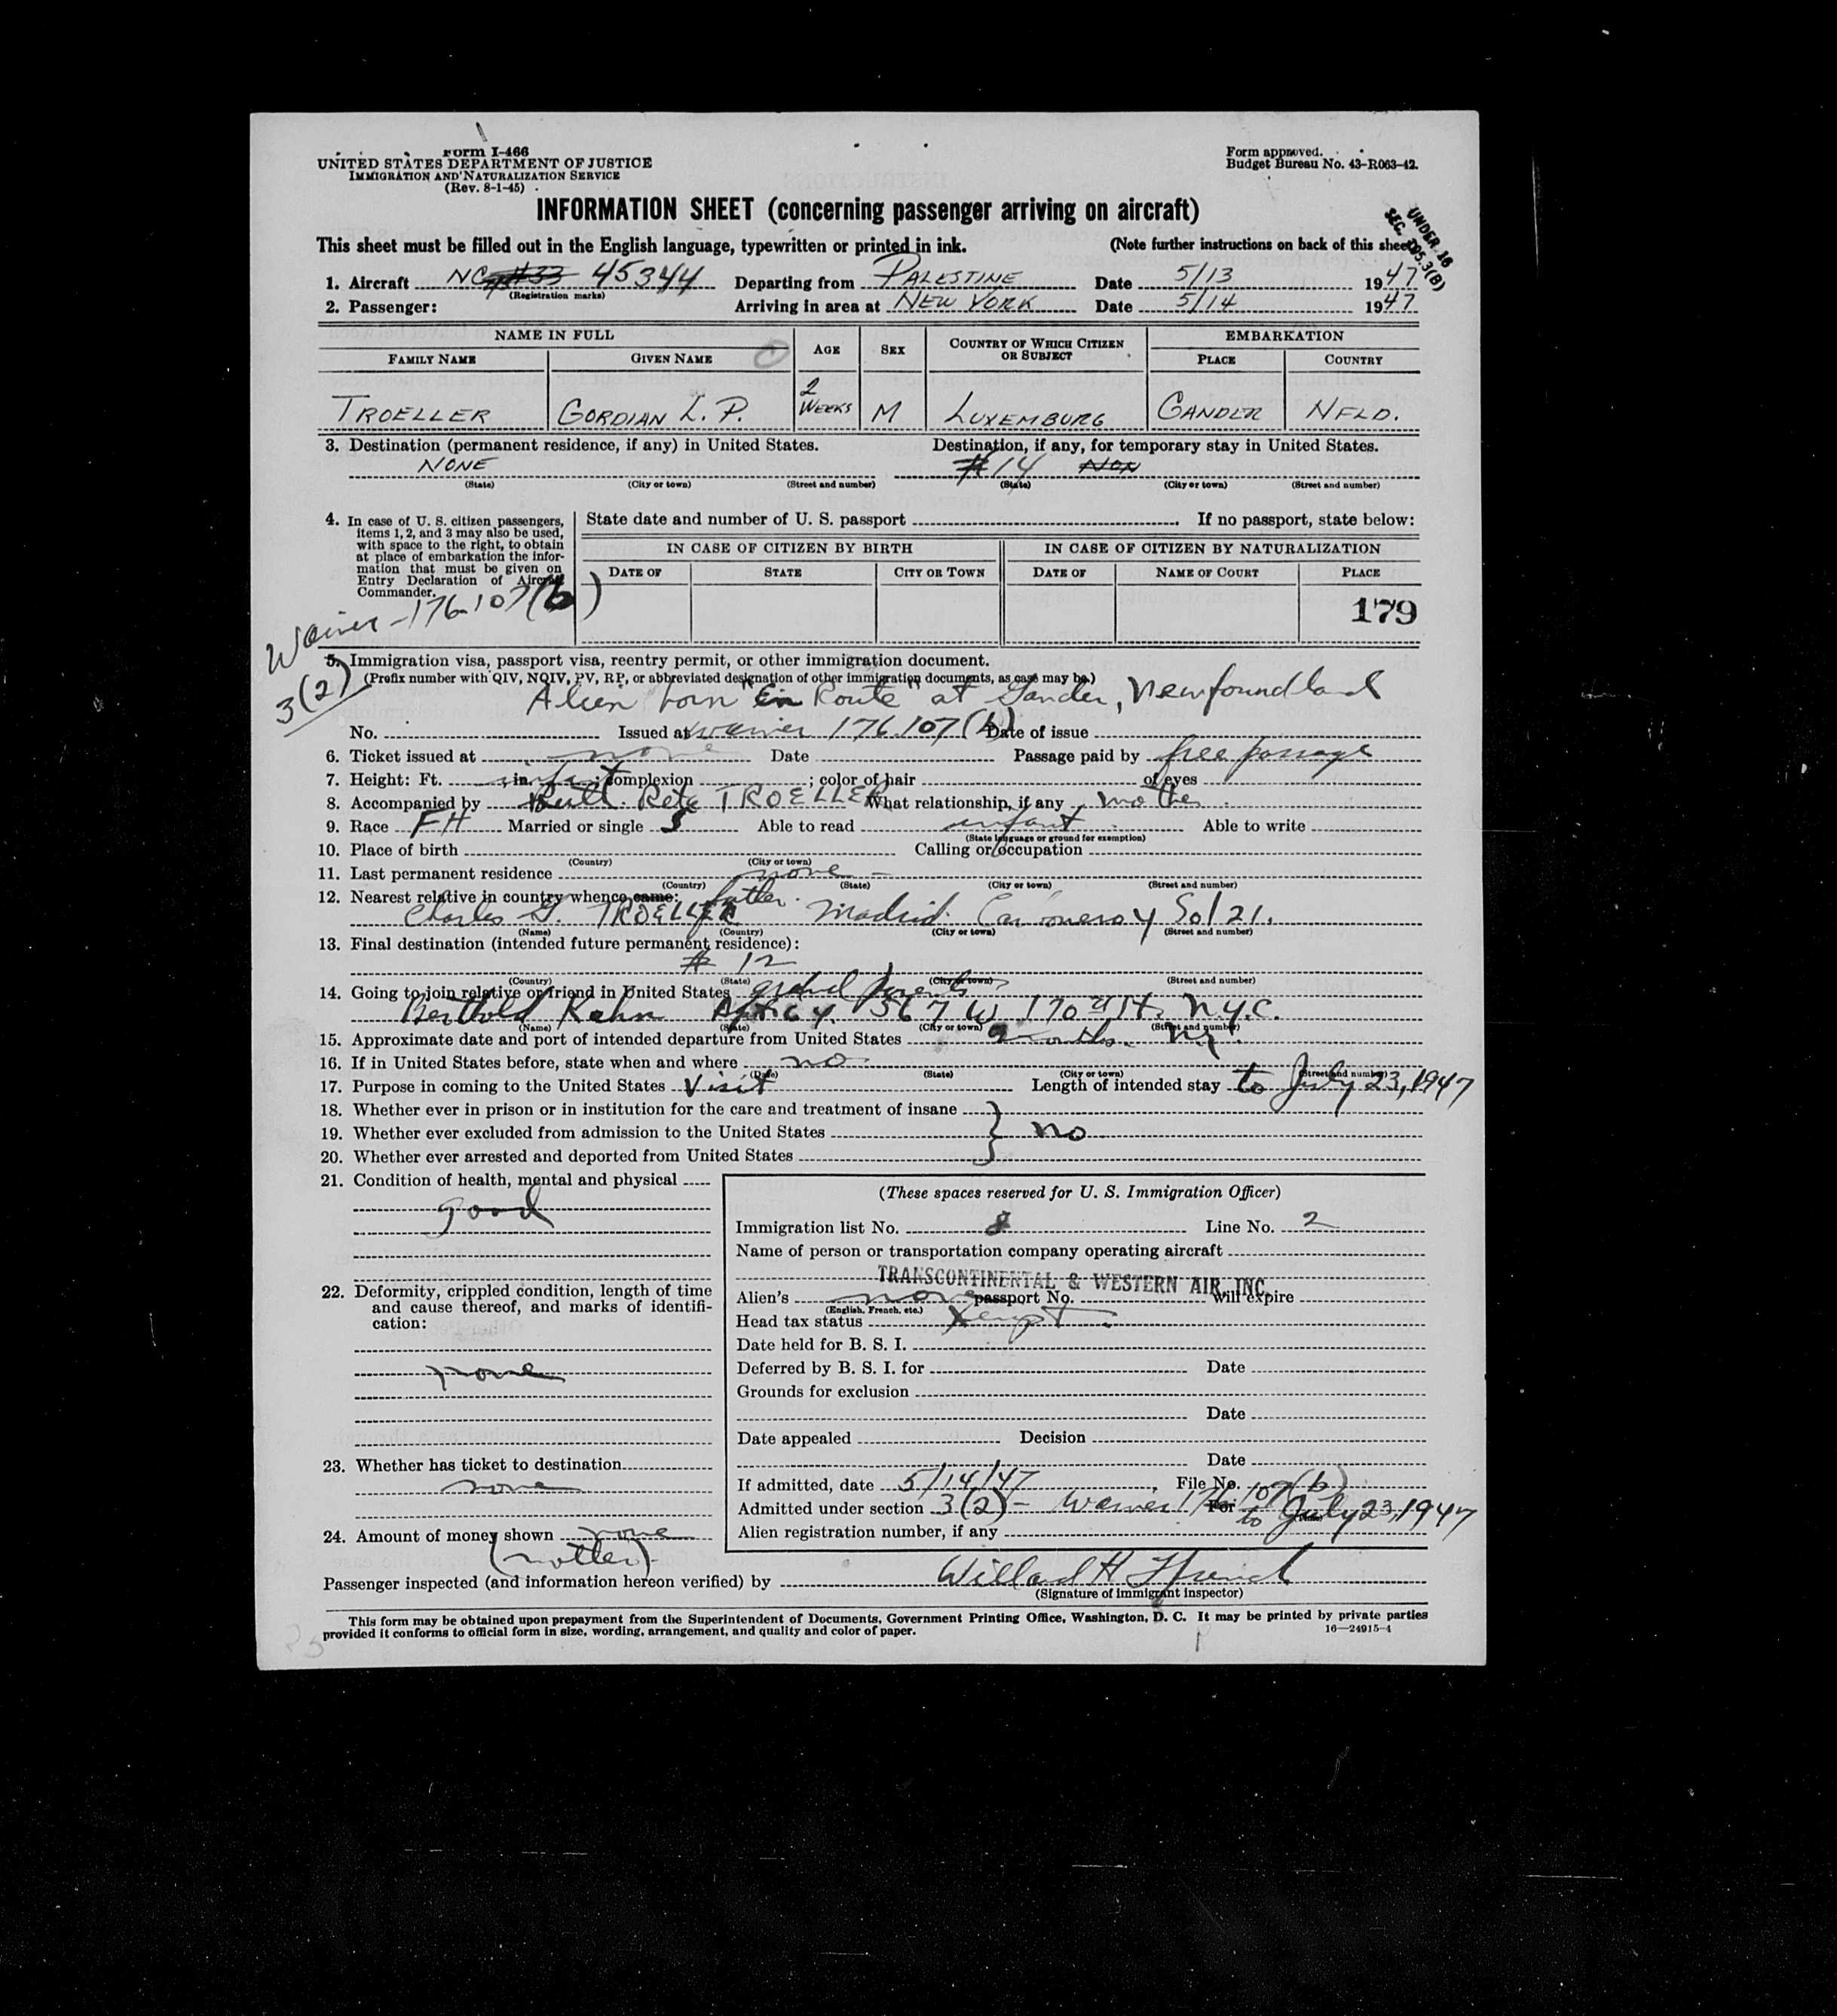 Form I-466
UNITED STATES DEPARTMENT OF JUSTICE
IMMIGRATION AND NATURALIZATION SERVICE
(Rev. 8-1-45)
Form approved.
Budget Bureau No. 43-R063-42.
INFORMATION SHEET (concerning passenger arriving on aircraft)
UNDER 16
SEC. 175.3(B)
This sheet must be filled out in the English language, typewritten or printed in ink. (Note further instructions on back of this sheet
1. Aircraft NC #33 45344 Departing from PALESTINE Date 5/13 1947
(Registration marks)
2. Passenger: Arriving in area at NEW YORK Date 5/14 1947
NAME IN FULL AGE SEX COUNTRY OF WHICH CITIZEN OR SUBJECT EMBARKATION
FAMILY NAME GIVEN NAME PLACE COUNTRY
TROELLER GORDIAN L. P. 2 WEEKS M LUXEMBURG GANDER NFLD.
3. Destination (permanent residence, if any) in United States. Destination, if any, for temporary stay in United States.
NONE #14 NON
(State) (City or town) (Street and number) (State) (City or town) (Street and number)
4. In case of U. S. citizen passengers, items 1, 2, and 3 may also be used, with space to the right, to obtain at place of embarkation the information that must be given on Entry Declaration of Aircraft Commander.
State date and number of U. S. passport . If no passport, state below:
IN CASE OF CITIZEN BY BIRTH IN CASE OF CITIZEN BY NATURALIZATION
DATE OF STATE CITY OR TOWN DATE OF NAME OF COURT PLACE
179
Waiver - 176.107(b)
3(2)
5. Immigration visa, passport visa, reentry permit, or other immigration document.
(Prefix number with QIV, NQIV, PV, RP, or abbreviated designation of other immigration documents, as case may be.)
Alien born "En Route" at Gander, Newfoundland
No. Issued at waiver 176.107(b) Date of issue
6. Ticket issued at none Date Passage paid by free passage
7. Height: Ft. , in. infant ; complexion ; color of hair of eyes
8. Accompanied by Reta TROELLER What relationship, if any mother
9. Race FH Married or single S Able to read infant Able to write
(State language or ground for exemption)
10. Place of birth Calling or occupation
(Country) (City or town)
11. Last permanent residence none
(Country) (State) (City or town) (Street and number)
12. Nearest relative in country whence came: father
Charles G. TROELLER Madrid. y Sol 21.
(Name) (Country) (City or town) (Street and number)
13. Final destination (intended future permanent residence):
# 12
(Country) (State) (City or town) (Street and number)
14. Going to join relative or friend in United States grand parents
Berthold Kahn Apt 64. 567 W 170th St. N.Y.C.
(Name) (State) (City or town) (Street and number)
15. Approximate date and port of intended departure from United States 2 months. NY.
16. If in United States before, state when and where no
(Date) (State) (City or town) (Street and number)
17. Purpose in coming to the United States Visit Length of intended stay to July 23, 1947
18. Whether ever in prison or in institution for the care and treatment of insane
19. Whether ever excluded from admission to the United States } no
20. Whether ever arrested and deported from United States
21. Condition of health, mental and physical
good
22. Deformity, crippled condition, length of time and cause thereof, and marks of identification:
none
23. Whether has ticket to destination
none
24. Amount of money shown none
(mother)
(These spaces reserved for U. S. Immigration Officer)
Immigration list No. 8 Line No. 2
Name of person or transportation company operating aircraft
TRANSCONTINENTAL & WESTERN AIR, INC.
Alien's none passport No. will expire
(English, French, etc.)
Head tax status Xempt
Date held for B. S. I.
Deferred by B. S. I. for Date
Grounds for exclusion
Date
Date appealed Decision
Date
If admitted, date 5/14/47 , File No.
Admitted under section 3(2) - Waiver 176.107(b) For to July 23, 1947
Alien registration number, if any
Passenger inspected (and information hereon verified) by Willard H
(Signature of immigrant inspector)
This form may be obtained upon prepayment from the Superintendent of Documents, Government Printing Office, Washington, D. C. It may be printed by private parties
provided it conforms to official form in size, wording, arrangement, and quality and color of paper. 16—24915-4